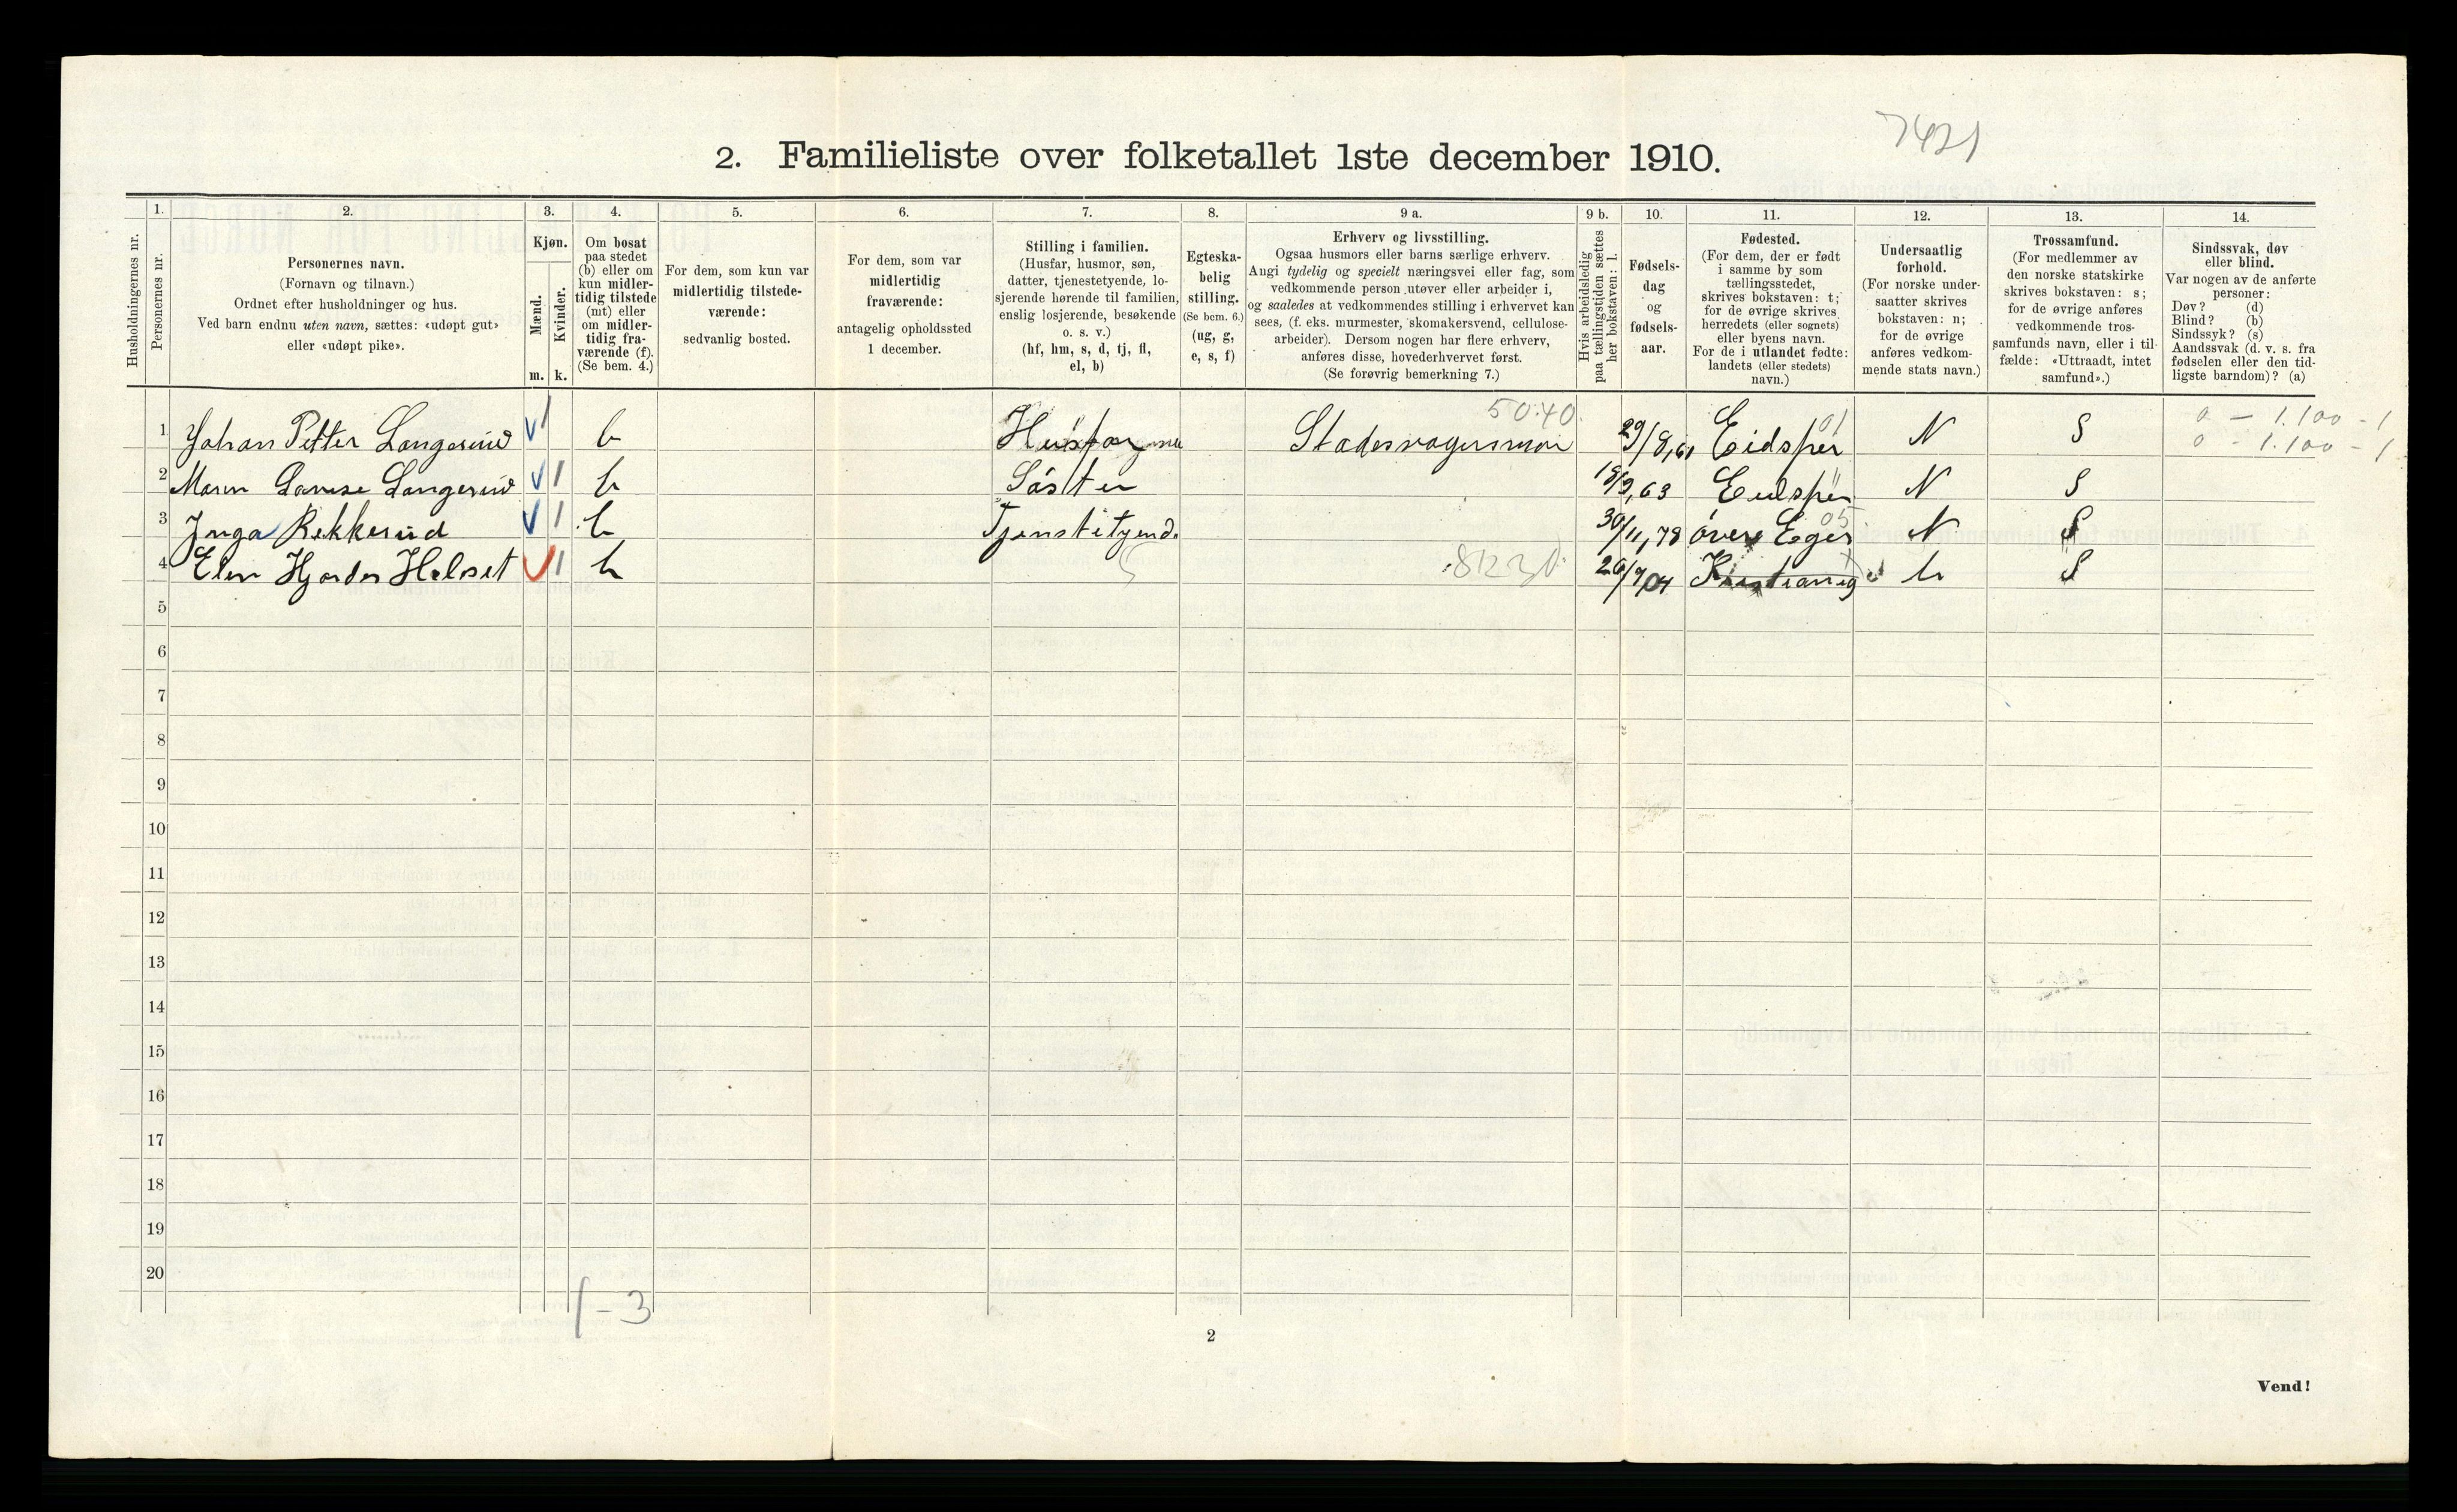 7421
2. Familieliste over folketallet 1ste december 1910.
1. 2. 3. 4. 5. 6. 7. 8. 9 a. 9 b. 10. 11. 12. 13. 14.
Husholdningernes nr.
Personernes nr.
Personernes navn.
(Fornavn og tilnavn.)
Ordnet efter husholdninger og hus.
Ved barn endnu uten navn, sættes: «udøpt gut»
eller «udøpt pike».
Kjøn.
Mænd.
Kvinder.
m. k.
Om bosat
paa stedet
(b) eller om
kun midler-
tidig tilstede
(mt) eller
om midler-
tidig fra-
værende (f).
(Se bem. 4.)
For dem, som kun var
midlertidig tilstede-
værende:
sedvanlig bosted.
For dem, som var
midlertidig
fraværende:
antagelig opholdssted
1 december.
Stilling i familien.
(Husfar, husmor, søn,
datter, tjenestetyende, lo-
sjerende hørende til familien,
enslig losjerende, besøkende
o. s. v.)
(hf, hm, s, d, tj, fl,
el, b)
Egteska-
belig
stilling.
(Se bem. 6.)
(ug, g,
e, s, f)
Erhverv og livsstilling.
Ogsaa husmors eller barns særlige erhverv.
Angi tydelig og specielt næringsvei eller fag, som
vedkommende person utøver eller arbeider i,
og saaledes at vedkommendes stilling i erhvervet kan
sees, (f. eks. murmester, skomakersvend, cellulose-
arbeider). Dersom nogen har flere erhverv,
anføres disse, hovederhvervet først.
(Se forøvrig bemerkning 7.)
Hvis arbeidsledig
paa tællingstiden sættes
her bokstaven: l.
Fødsels-
dag
og
fødsels-
aar.
Fødested.
(For dem, der er født
i samme by som
tællingsstedet,
skrives bokstaven: t;
for de øvrige skrives
herredets (eller sognets)
eller byens navn.
For de i utlandet fødte:
landets (eller stedets)
navn.)
Undersaatlig
forhold.
(For norske under-
saatter skrives
bokstaven: n;
for de øvrige
anføres vedkom-
mende stats navn.)
Trossamfund.
(For medlemmer av
den norske statskirke
skrives bokstaven: s;
for de øvrige anføres
vedkommende tros-
samfunds navn, eller i til-
fælde: «Uttraadt, intet
samfund».)
Sindssvak, døv
eller blind.
Var nogen av de anførte
personer:
Døv? (d)
Blind? (b)
Sindssyk? (s)
Aandssvak (d. v. s. fra
fødselen eller den tid-
ligste barndom)? (a)
50.40 01 0 - 1.100 - 1
1 Johan Petter Langerud 1 b Husfar 29/8, Eidsper N S 0 - 1.100 - 1
2 Maren Lovise Langerud 1 b Söster 18/9, 63 N S
3 Inga Rekkerud 1 b 30/11, 78 övere Eger 05 N S
4 Helset 1 b 26/9 04 S
5
6
7
8
9
10
11
12
13
14
15
16
17
18
19
20
1 - 3
2
Vend!